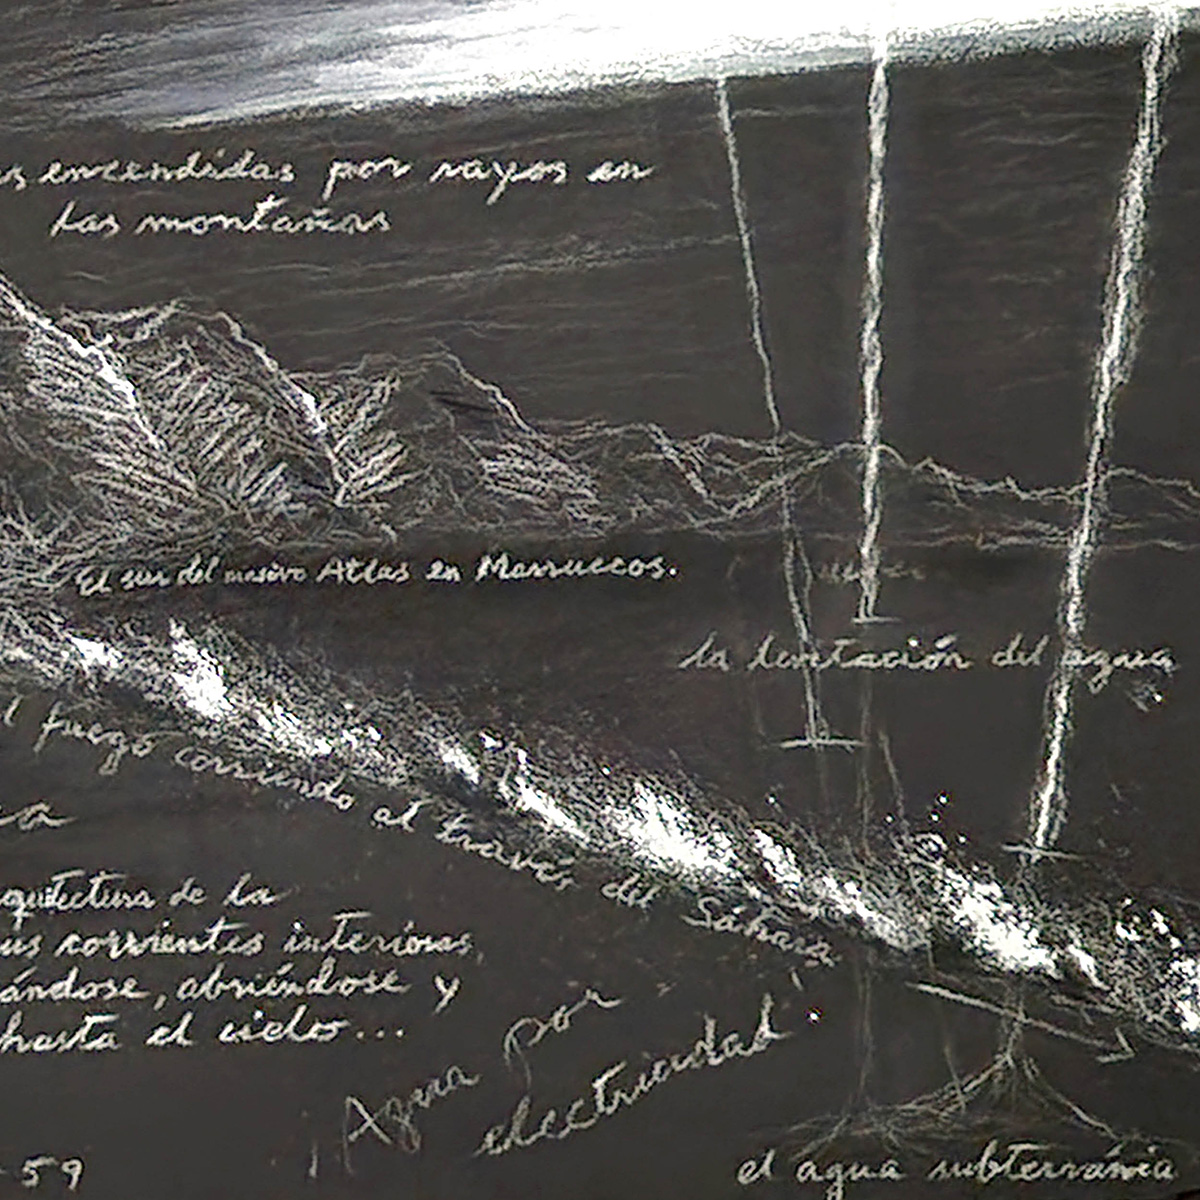 encendidas por rayos en
las montañas
El sur del masivo Atlas en Marruecos.
la levitación del agua
fuego corriendo al través del Sáhara
quitectura de la
us corrientes interiores,
ándose, abriéndose y
hasta el cielo...
Agua por
electricidad
59
el agua subterránia